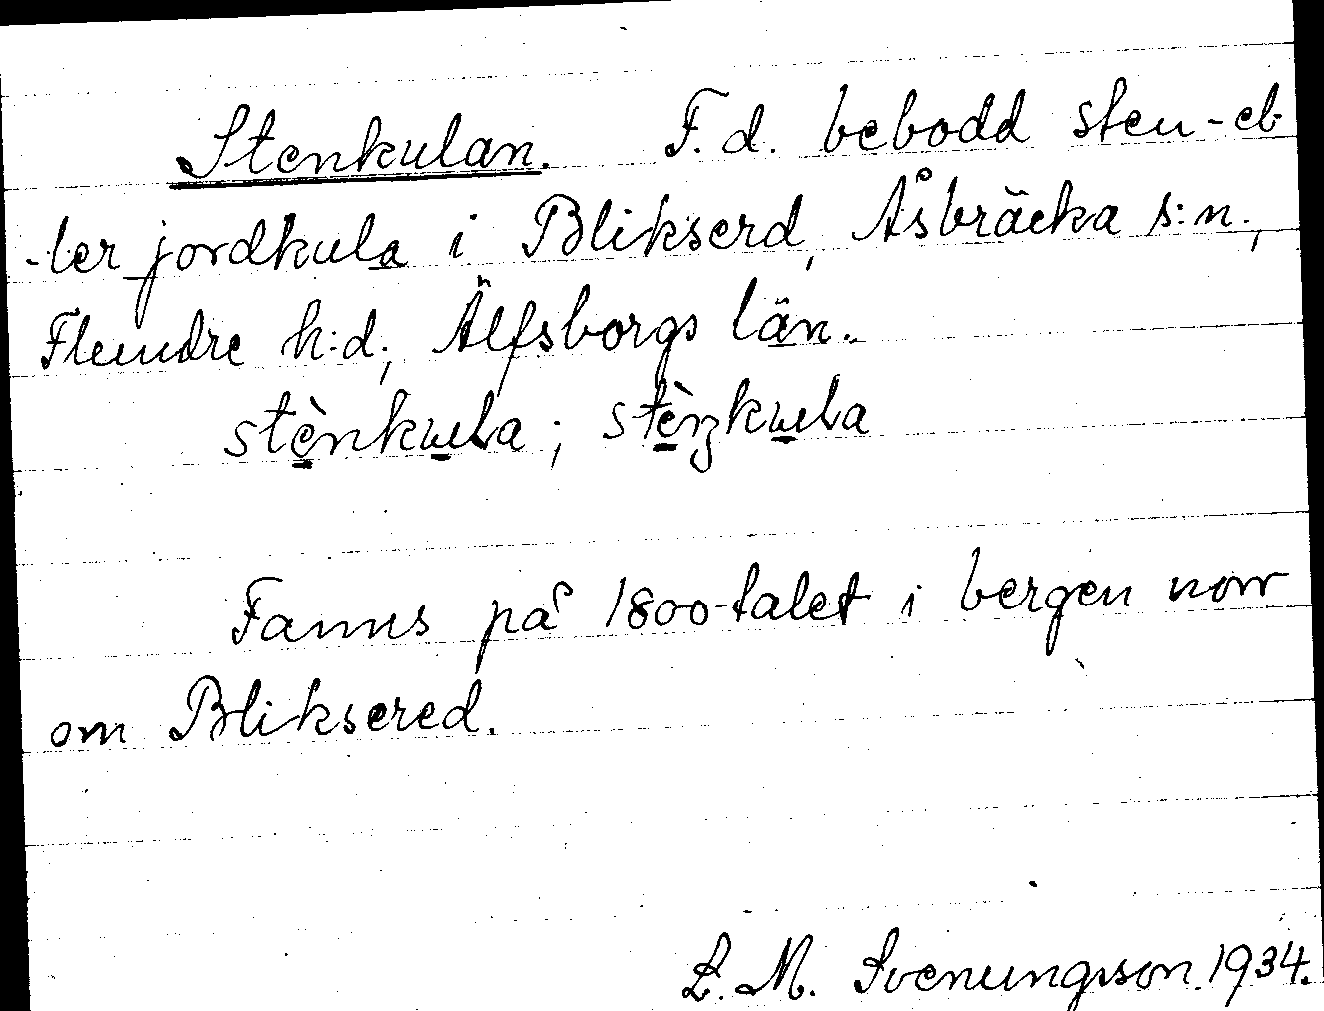 Stenkulan. F.d. bebodd sten- el-
-ler jordkula i Blikserd, Åsbräcka s:n,
Flundre h:d, Älfsborgs län.
stènkula; stèŋkula
Fanns på 1800-talet i bergen norr
om Bliksered.
L. M. Svenungsson. 1934.